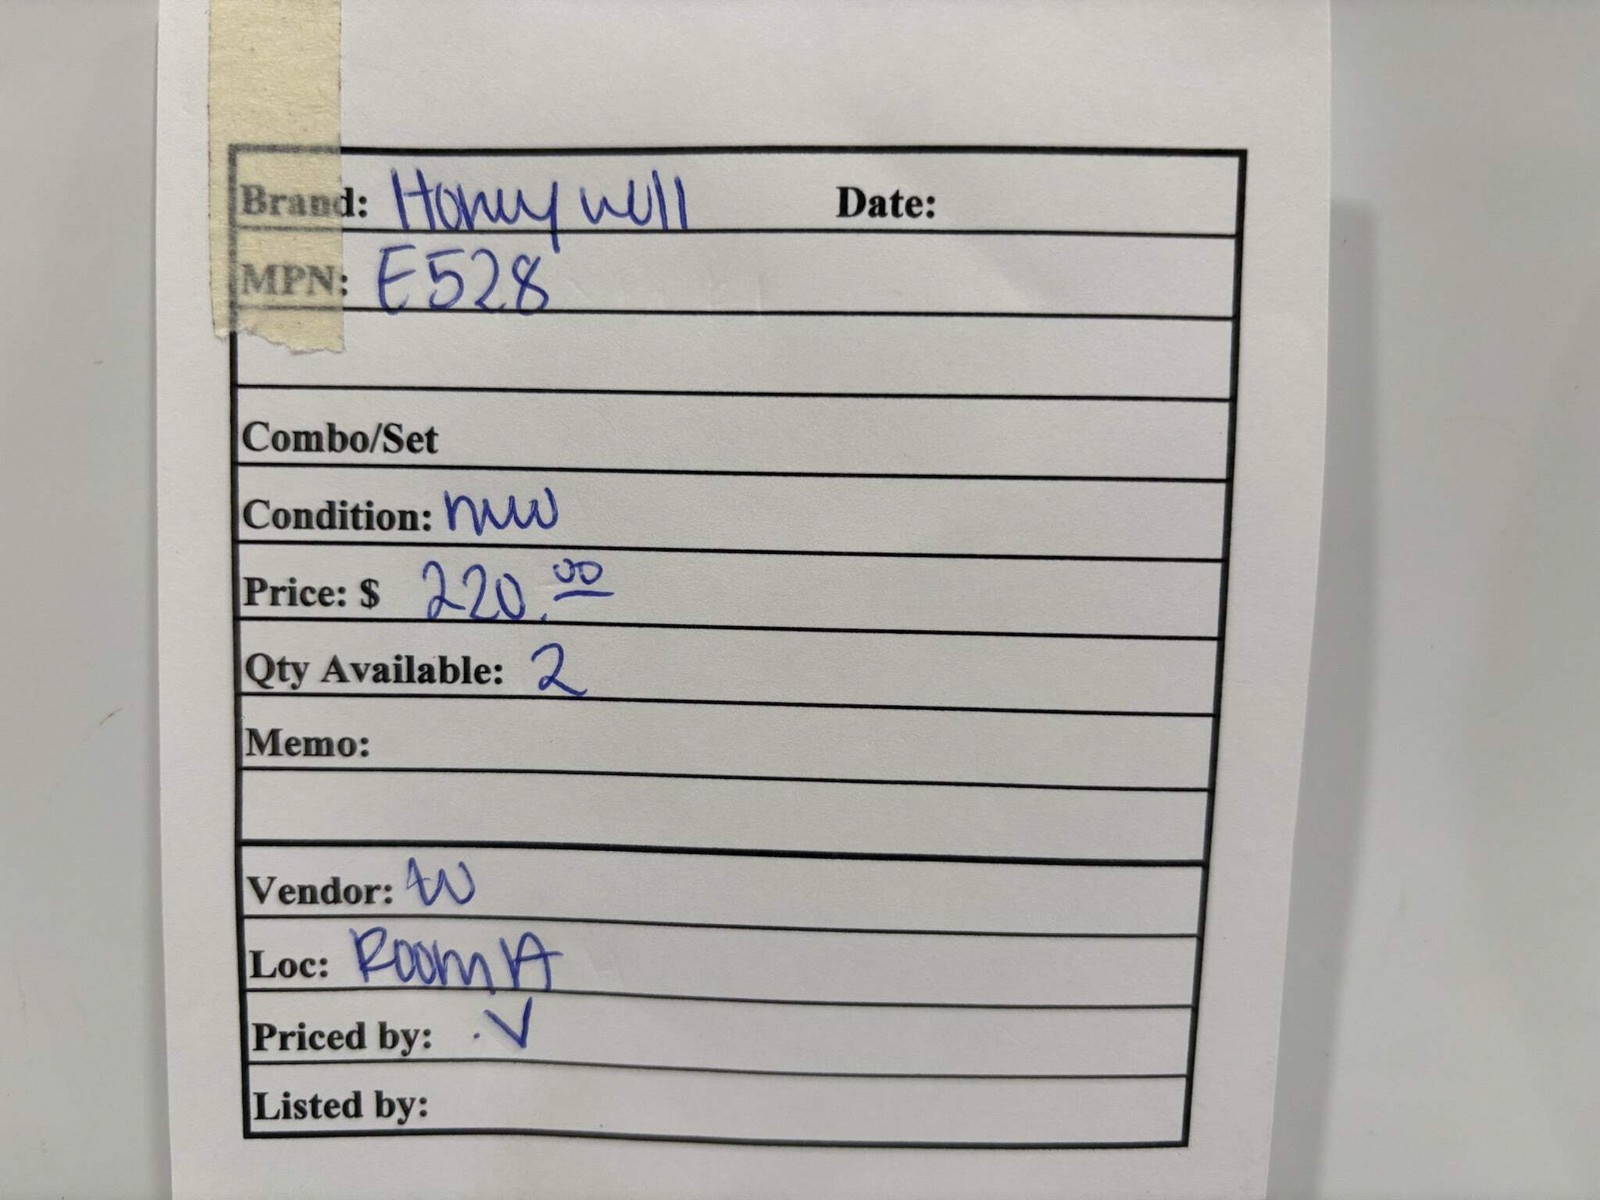 Brand: Honeywell Date:
MPN: E528
Combo/Set
Condition: new
Price: $ 220.00
Qty Available: 2
Memo:
Vendor: tw
Loc: Room 1A
Priced by: .V
Listed by: